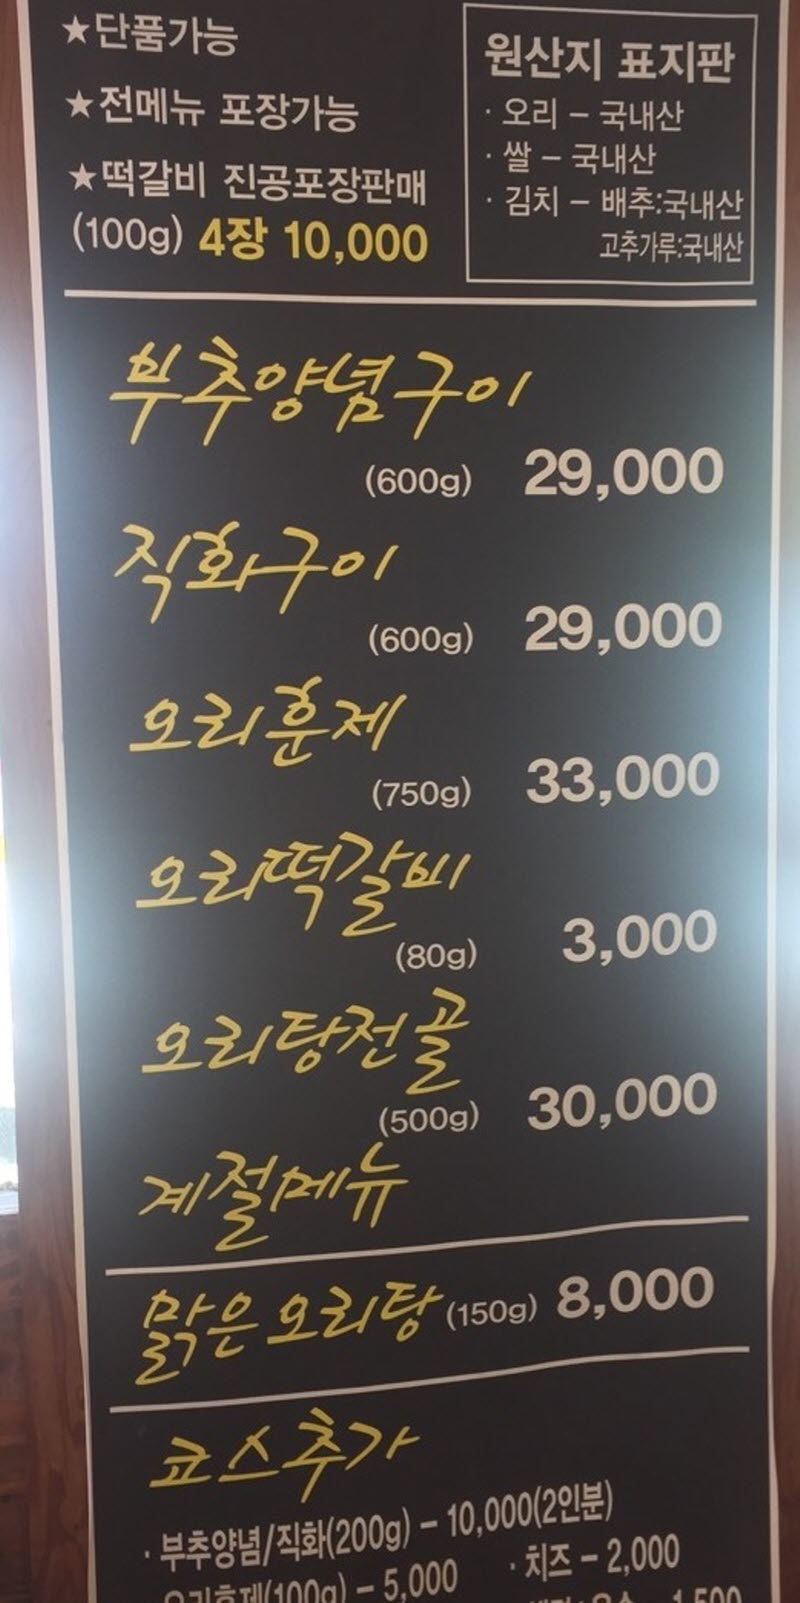 ★단품가능
★전메뉴 포장가능
★떡갈비 진공포장판매
(100g) 4장 10,000
원산지 표지판
· 오리 – 국내산
· 쌀 – 국내산
· 김치 – 배추:국내산
고추가루:국내산
부추양념구이
(600g) 29,000
직화구이
(600g) 29,000
오리훈제
(750g) 33,000
오리떡갈비
(80g) 3,000
오리탕전골
(500g) 30,000
계절메뉴
맑은오리탕 (150g) 8,000
쿄스추가
· 부추양념/직화(200g) – 10,000(2인분)
오리훈제(100g) – 5,000 · 치즈 – 2,000
1,500